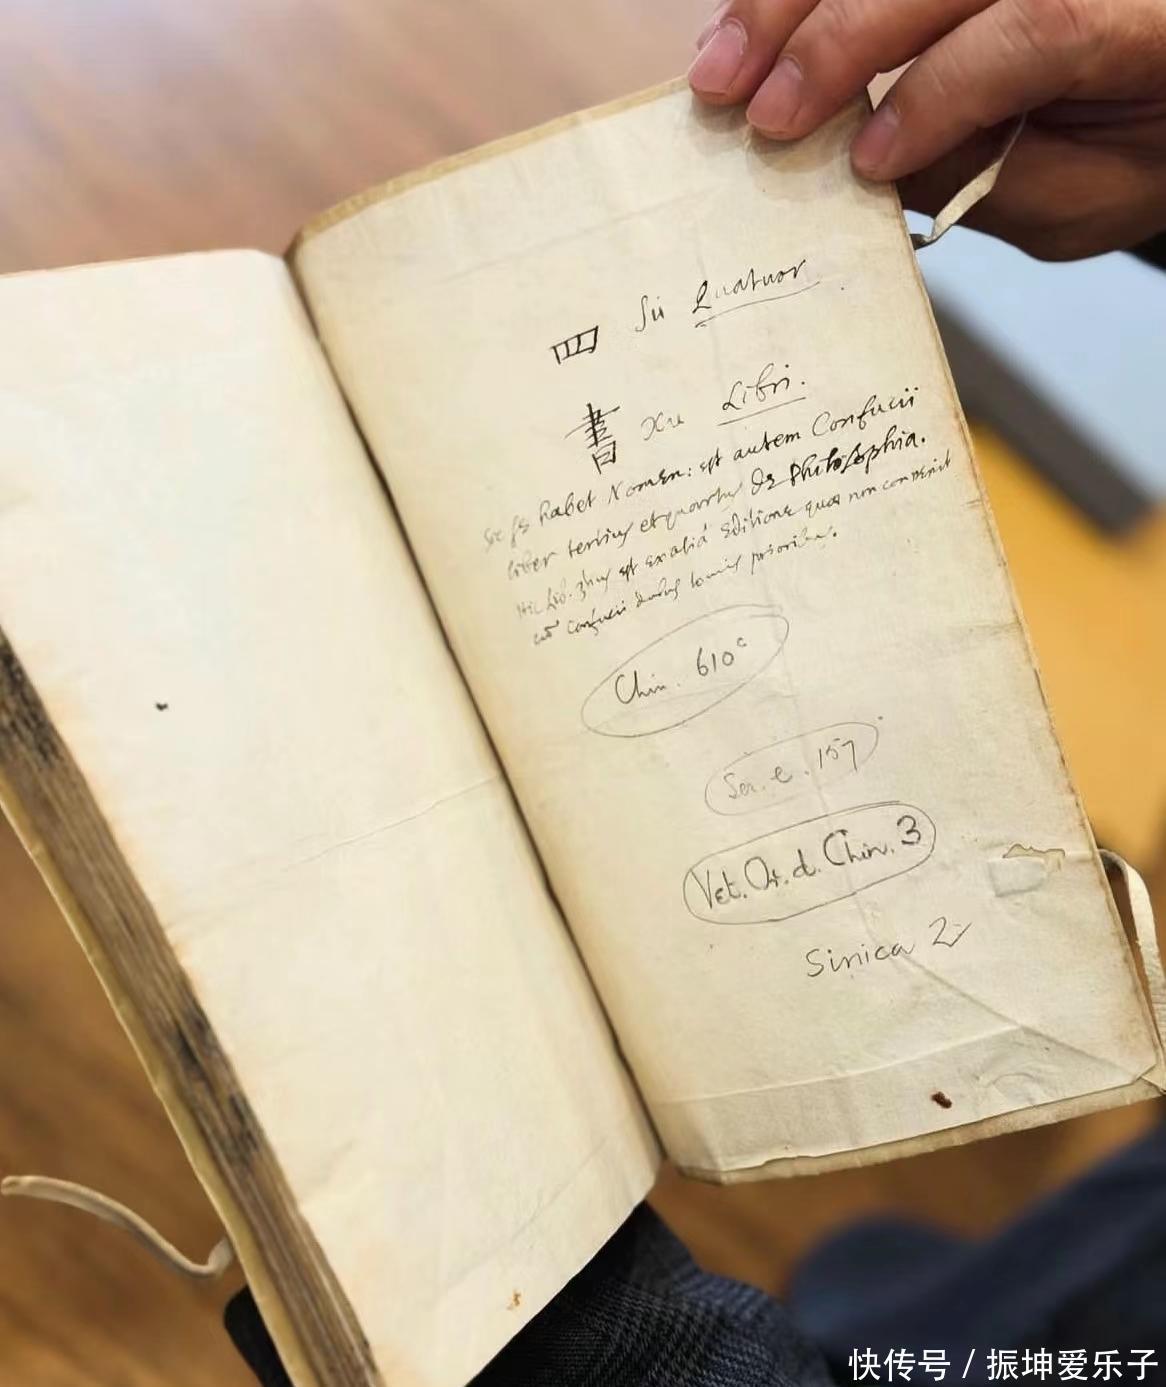 四 Su Quatuor
書 Xu Libri.
habet Nomen: est autem Confucii
liber tertius et quartus de Philosophia.
Hic Lib. est ex alia Editione quae non convenit
cũ Confucii
Chin. 610ᶜ
Ser. e. 157
Vet. Or. d. Chin. 3
Sinica 2
快传号 / 振坤爱乐子